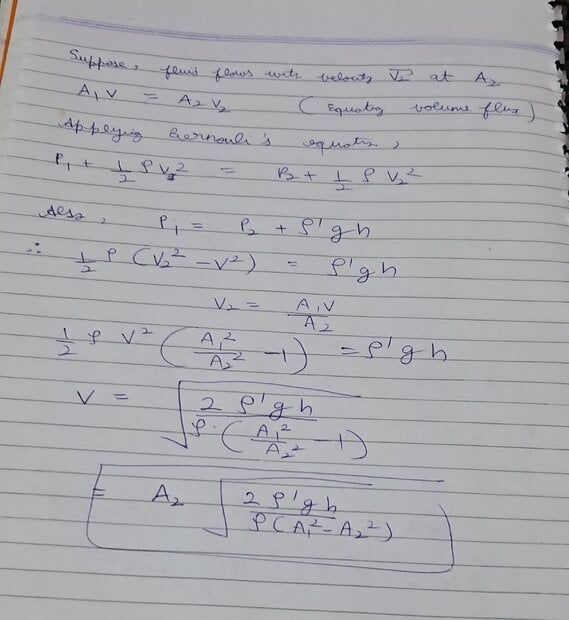 Suppose, fluid flows with velocity V₂ at A₂
A₁ V = A₂ V₂ (Equating volume flux)
Applying Bernouli's equation,
P₁ + 1/2 ρ V² = P₂ + 1/2 ρ V₂²
Also, P₁ = P₂ + ρ'gh
∴ 1/2 ρ (V₂² – V²) = ρ'gh
V₂ = A₁V/A₂
1/2 ρ V² (A₁²/A₂² – 1) = ρ'gh
V = √(2ρ'gh / ρ·(A₁²/A₂² – 1))
= A₂ √(2ρ'gh / ρ(A₁² – A₂²))